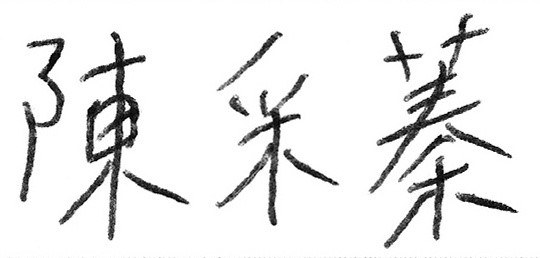 陳采蓁